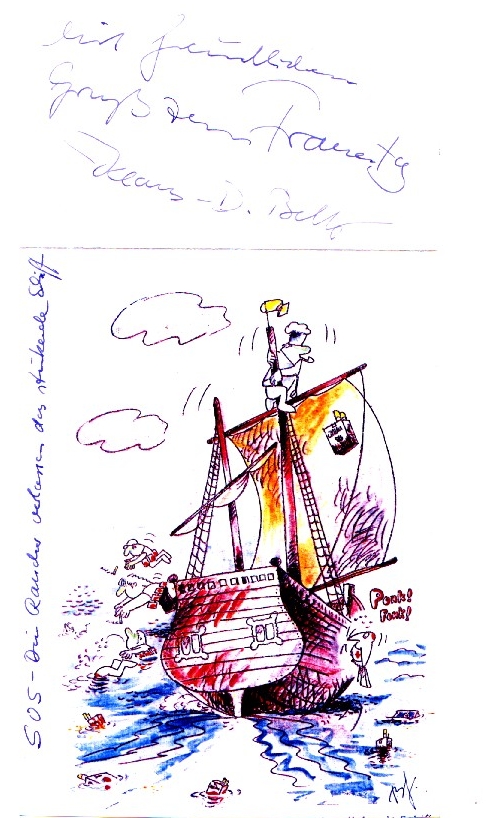 mit freundlichem
Gruß zum Frauentag
Klaus-D.
SOS - Die Raucher verlassen das stinkende Schiff
Ponk!
Ponk!